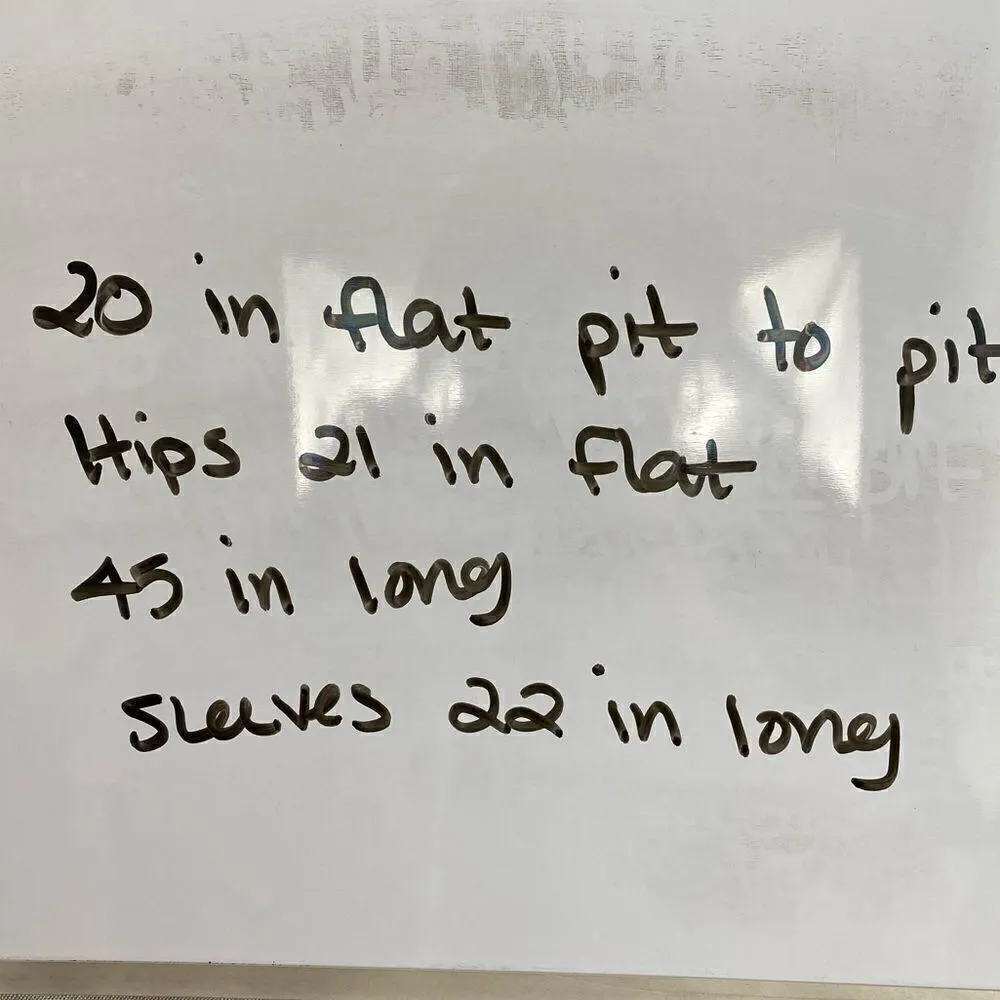 20 in flat pit to pit
Hips 21 in flat
45 in long
Sleeves 22 in long